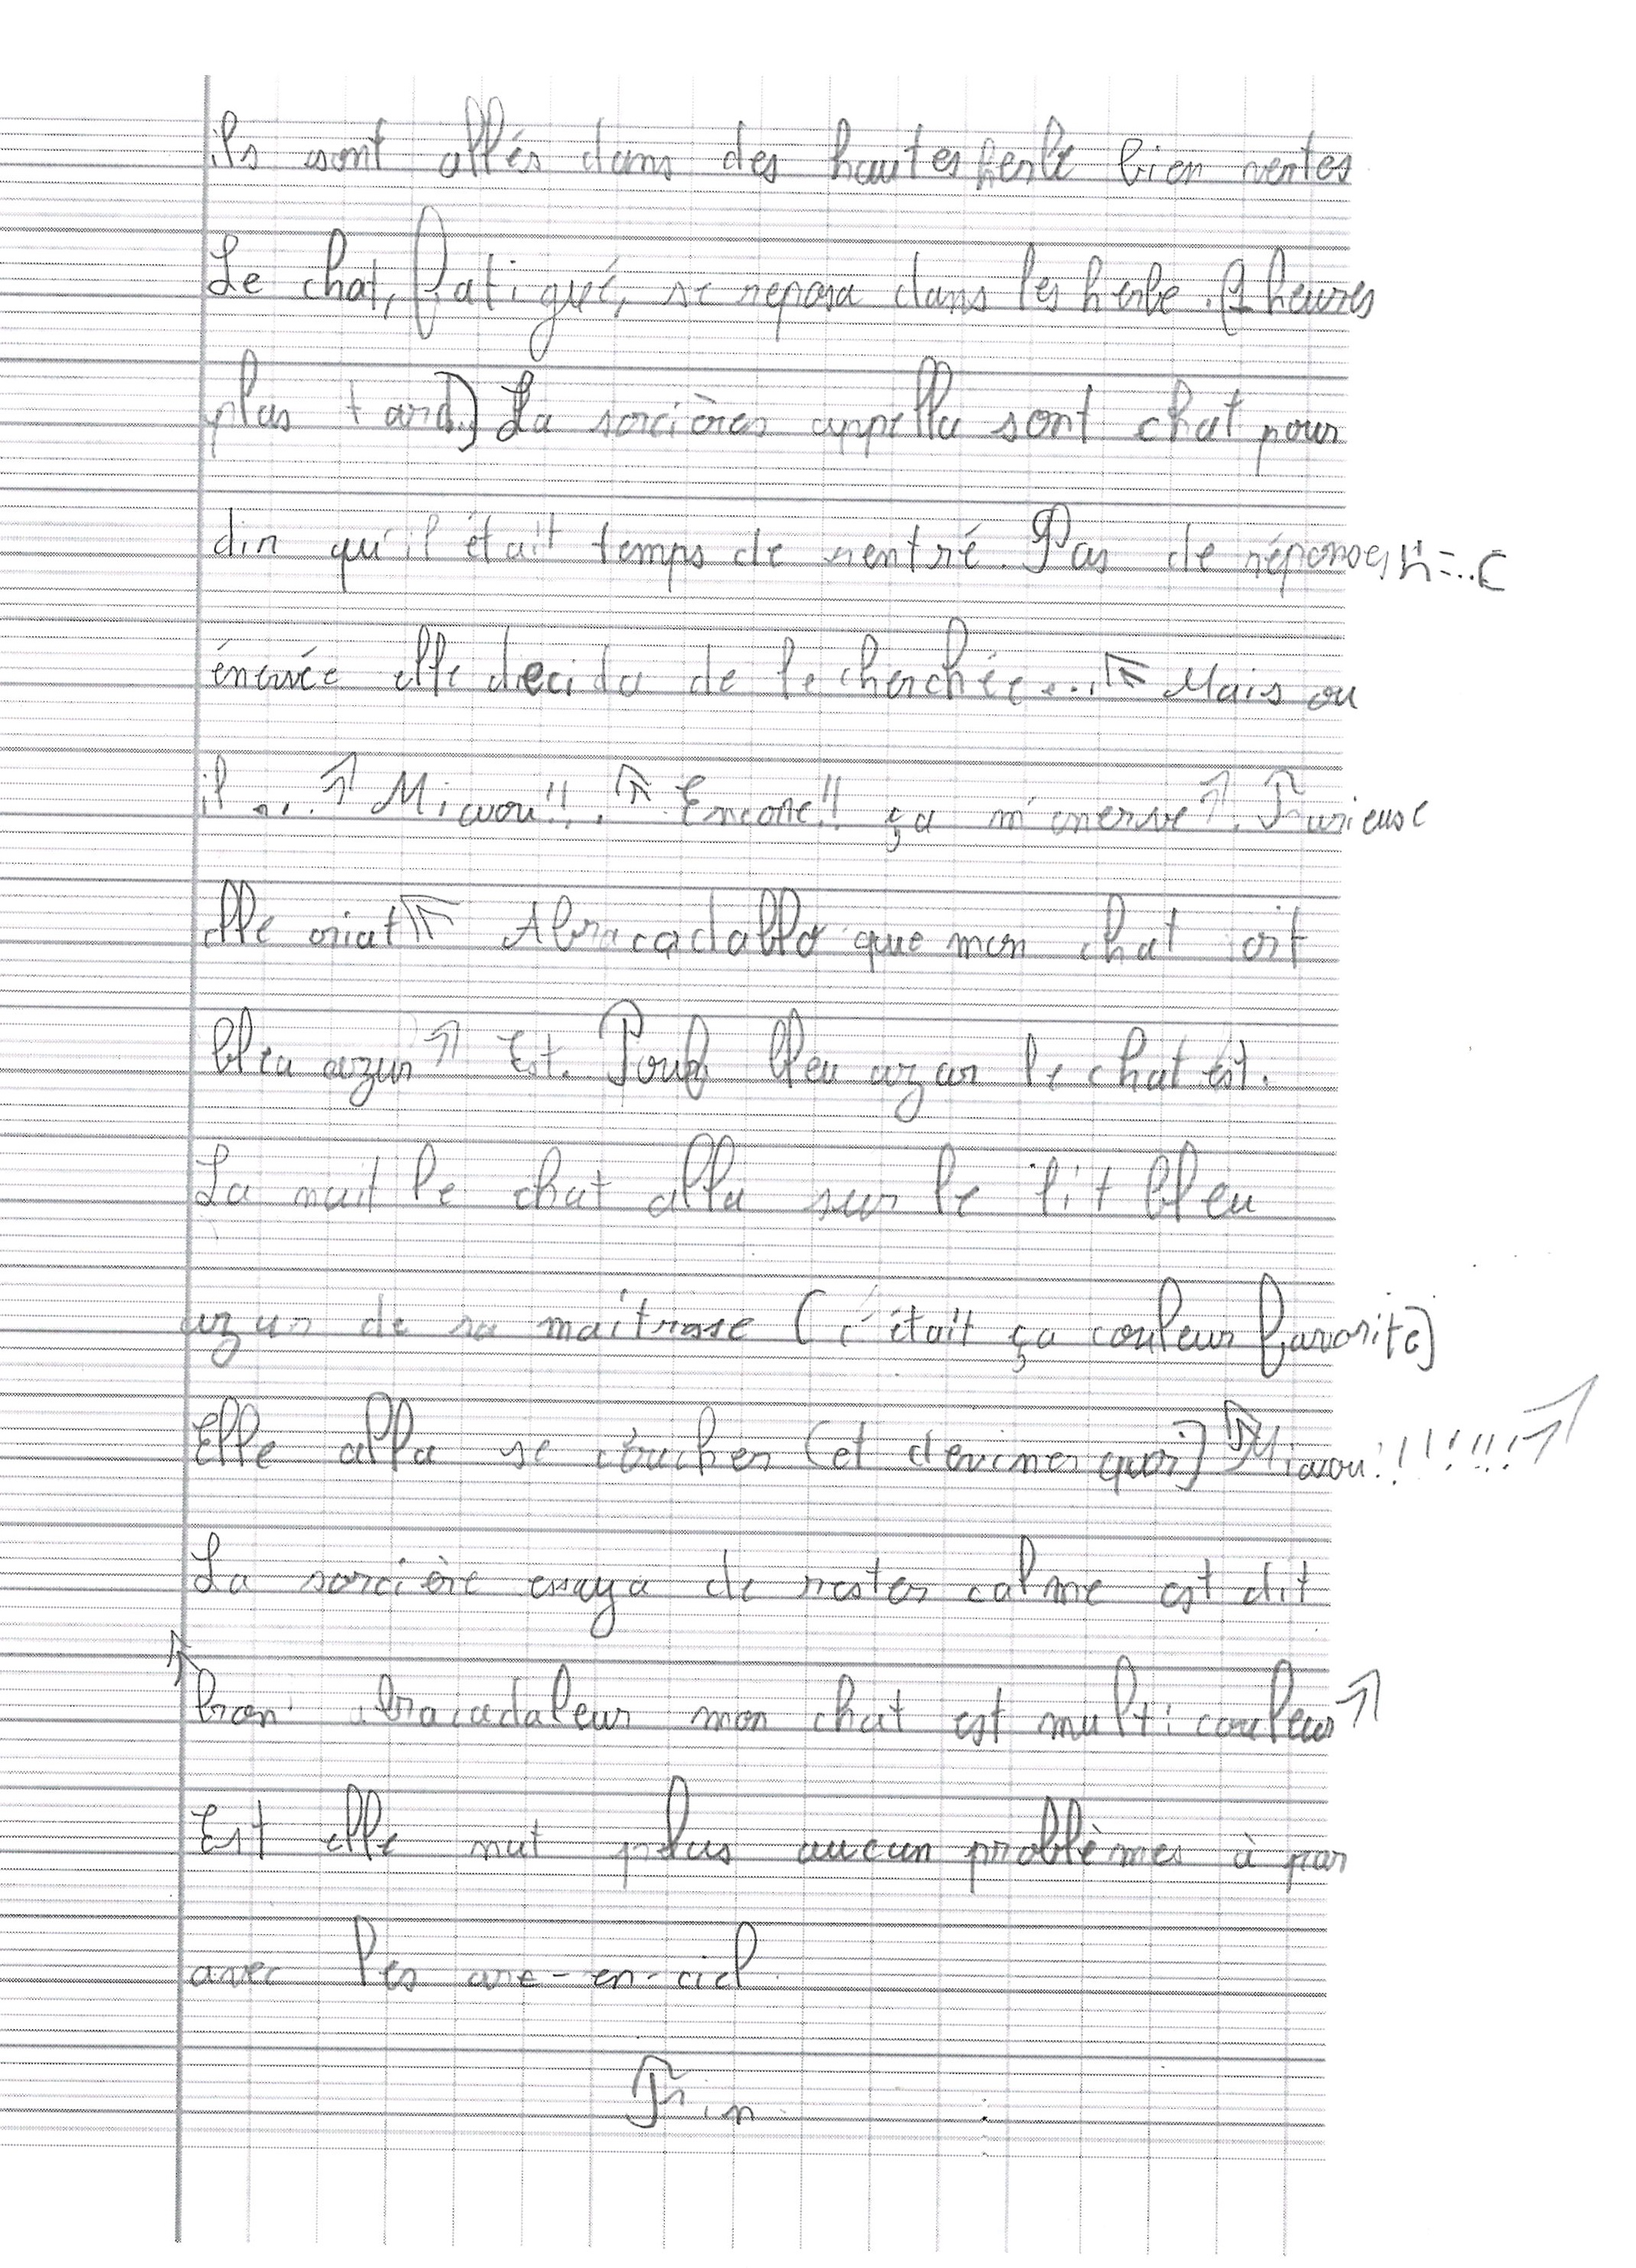 ils sont allés dans des hautes herbe bien vertes
Le chat, fatigué, se reposa dans les herbe. (1 heures
plus tard.) La sorcières appella sont chat pour
dir qu'il était temps de rentré. Pas de réponse,
énervée elle decida de le cherchée... "Mais ou
il ..." Miaou!!. "Encore!! ça m'enerve". Furieuse
elle criat "Abracadabla que mon chat soit
bleu azur" Est. Pouf bleu azur le chat est.
La nuit le chat alla sur le lit bleu
azur de sa maîtrase (c'était ça couleur favorite)
Elle alla se coucher (et deviner quoi) "Miaou!!!!!!!"
La sorcière essaya de rester calme est dit
"bron abracadaleur mon chat est multi couleur"
Est elle nut plus aucun problèmes à par
avec les arc-en-ciel.
Fin